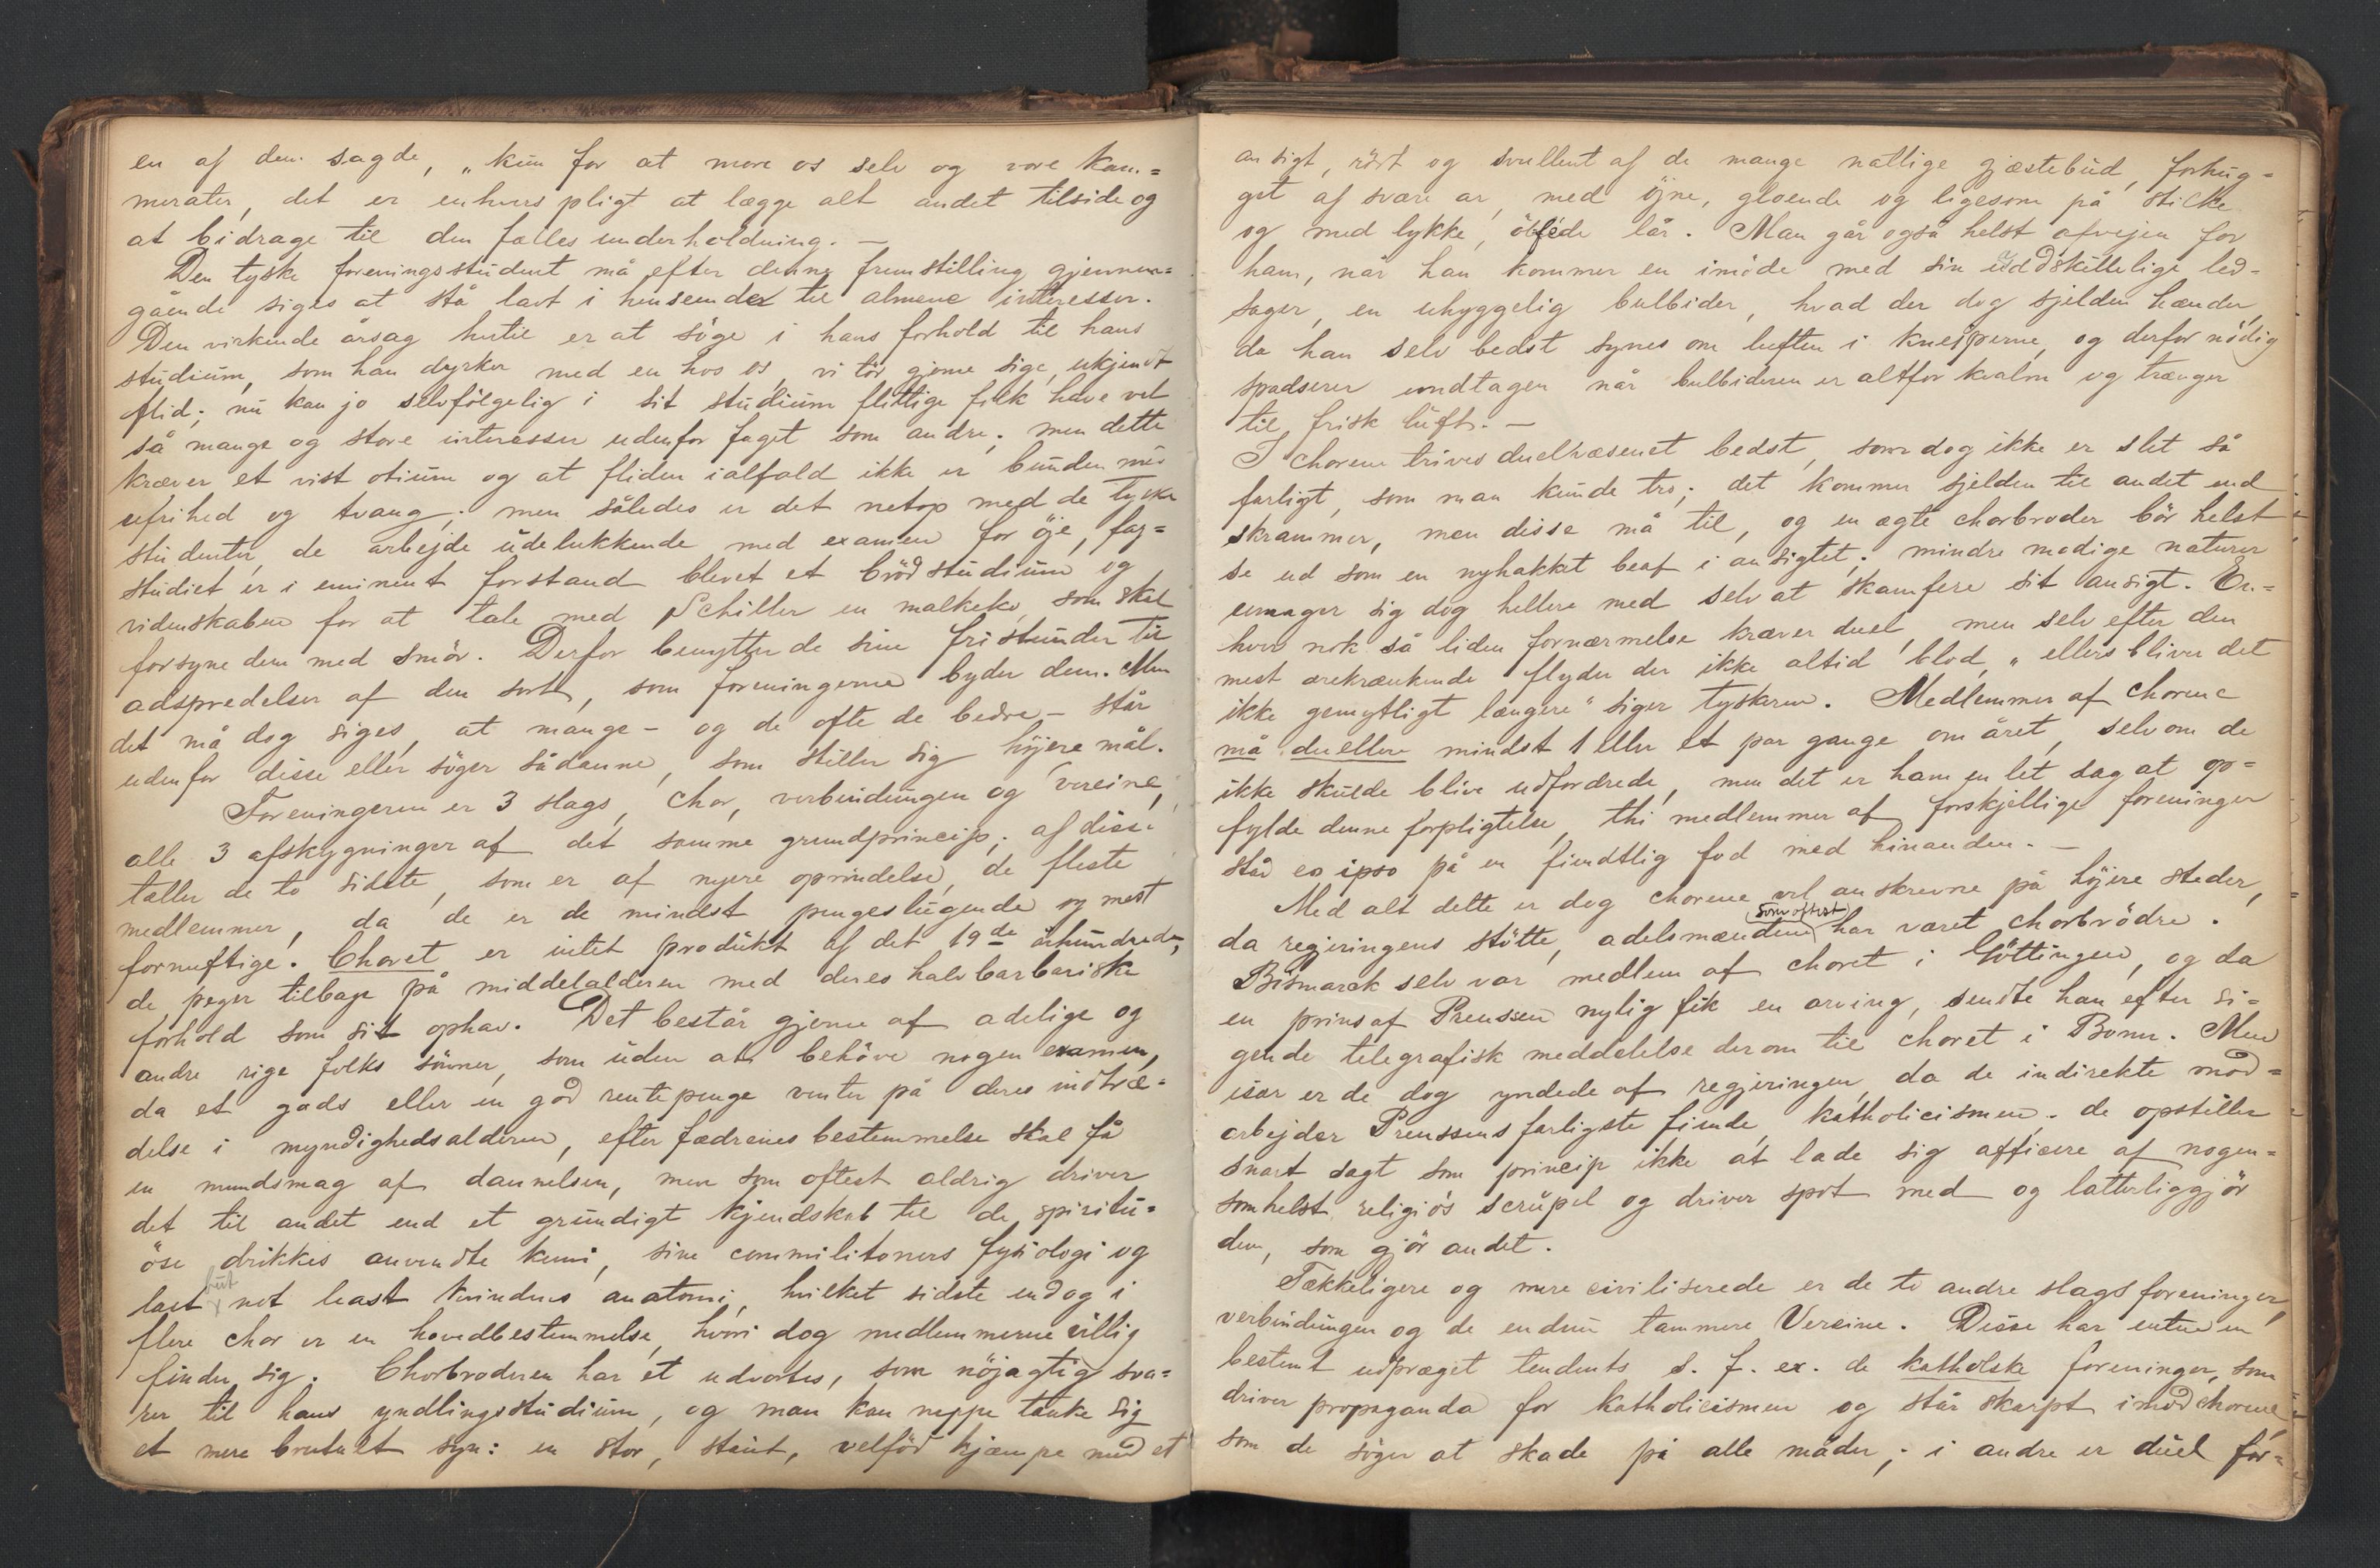 en af dem sagde, „kun for at more os selv og vore kam=
merater, det er enhvers pligt at lægge alt andet tilside og
at bidrage til den fælles underholdning. —
Den tyske foreningsstudent må efter denne fremstilling gjennem=
gående siges at stå lavt i henseende til almene interesser.
Den virkende årsag hertil er at söge i hans forhold til hans
studium, som han dyrker med en hos os, vi tör gjerne sige, ukjendt
flid; nu kan jo selvfölgelig i sit studium flittige folk have vel
så mange og store interesser udenfor faget som andre; men dette
kræver et vist otium og at fliden ialfald ikke er bunden med
ufrihed og tvang; men således er det netop med de tyske
studenter, de arbejde udelukkende med examen for öje, fag=
studiet er i eminent forstand blevet et brödstudium og
videnskaben for at tale med Schiller en malkeko, som skal
forsyne dem med smör. Derfor benytter de sine fristunder til
adspredelser af den sort, som foreningerne byder dem. Men
det må dog siges, at mange – og de ofte de bedre – står
udenfor disse eller söger sådanne, som stiller sig höjere mål.
Foreningerne er 3 slags, chor, verbindungen og vereine,
alle 3 afskygninger af det samme grundprincip; af disse
tæller de to sidste, som er af nyere oprindelse, de fleste
medlemmer, da de er de mindst pengeslugende og mest
fornuftige. Choret er intet produkt af det 19de århundrede,
de peger tilbage på middelalderen med deres halvbarbariske
forhold som sit ophav. Det består gjerne af adelige og
andre rige folks sönner, som uden at behöve nogen examen,
da et gods eller en god rentepenge venter på deres indtræ=
delse i myndighedsalderen, efter fædrenes bestemmelse skal få
en mundsmag af dannelsen, men som oftest aldrig driver
det til andet end et grundigt kjendskab til de spiritu=
öse drikkes anvendte kemi, sine commilitoners fysiologi og
last but not least kvindens anatomi, hvilket sidste endog i
flere chor er en hovedbestemmelse, hvori dog medlemmerne villig
finder sig. Chorbroderen har et udvortes, som nöjagtig sva=
rer til hans yndlingsstudium, og man kan neppe tænke sig
et mere brutalt syn: en stor, staut, velföd kjæmpe med et
ansigt, rödt og svullent af de mange natlige gjæstebud, forhug=
get af svære ar, med öjne, gloende og ligesom på stilke
og med tykke, lår. Man går også helst afvejen for
ham, når han kommer en imöde med sin uadskillelige led=
sager, en uhyggelig bulbider, hvad der dog sjelden hænder,
da han selv bedst synes om luften i kneiperne, og derfor nödig
spadserer undtagen når bulbideren er altfor kvalm og trænger
til frisk luft. —
I chorene trives duelvæsenet bedst, som dog ikke er slet så
farligt, som man kunde tro; det kommer sjelden til andet end
skrammer, men disse må til, og en ægte chorbroder bör helst
se ud som en nyhakket beaf i ansigtet; mindre modige naturer
umager sig dog hellere med selv at skamfere sit ansigt. En=
hver nok så liden fornærmelse kræver duel, men selv efter den
mest ærekrænkende flyder der ikke altid blod, „ellers bliver det
ikke gemytligt længere" siger tyskeren. Medlemmer af chorene
må duellere mindst 1 eller et par gange om året, selvom de
ikke skulde blive udfordrede, men det er ham en let sag at op=
fylde denne forpligtelse, thi medlemmer af forskjellige foreninger
står eo ipso på en fiendtlig fod med hinanden. —
Med alt dette er dog chorene vel anskrevne på höjere steder,
da regjeringens stötte, adelsmændene (som oftest) har været chorbrödre.
Bismarck selv var medlem af choret i Göttingen, og da
en prins af Preussen nylig fik en arving, sendte han efter si=
gende telegrafisk meddelelse derom til choret i Bonn. Men
især er de dog yndede af regjeringen, da de indirekte mod=
arbejder Preussens farligste fiende, katholicismen. de opstiller
snart sagt som princip ikke at lade sig afficere af nogen=
somhelst religiös scrupel og driver spot med og latterliggjör
dem, som gjör andet.
Tækkeligere og mere civiliserede er de to andre slags foreninger,
verbindungen og de endnu tammere Vereine. Disse har enten en
bestemt udpræget tendents s. f. ex. de katholske foreninger, som
driver propaganda for katholicismen og står skarpt imod chorene,
som de söger at skade på alle måder; i andre er duel for=